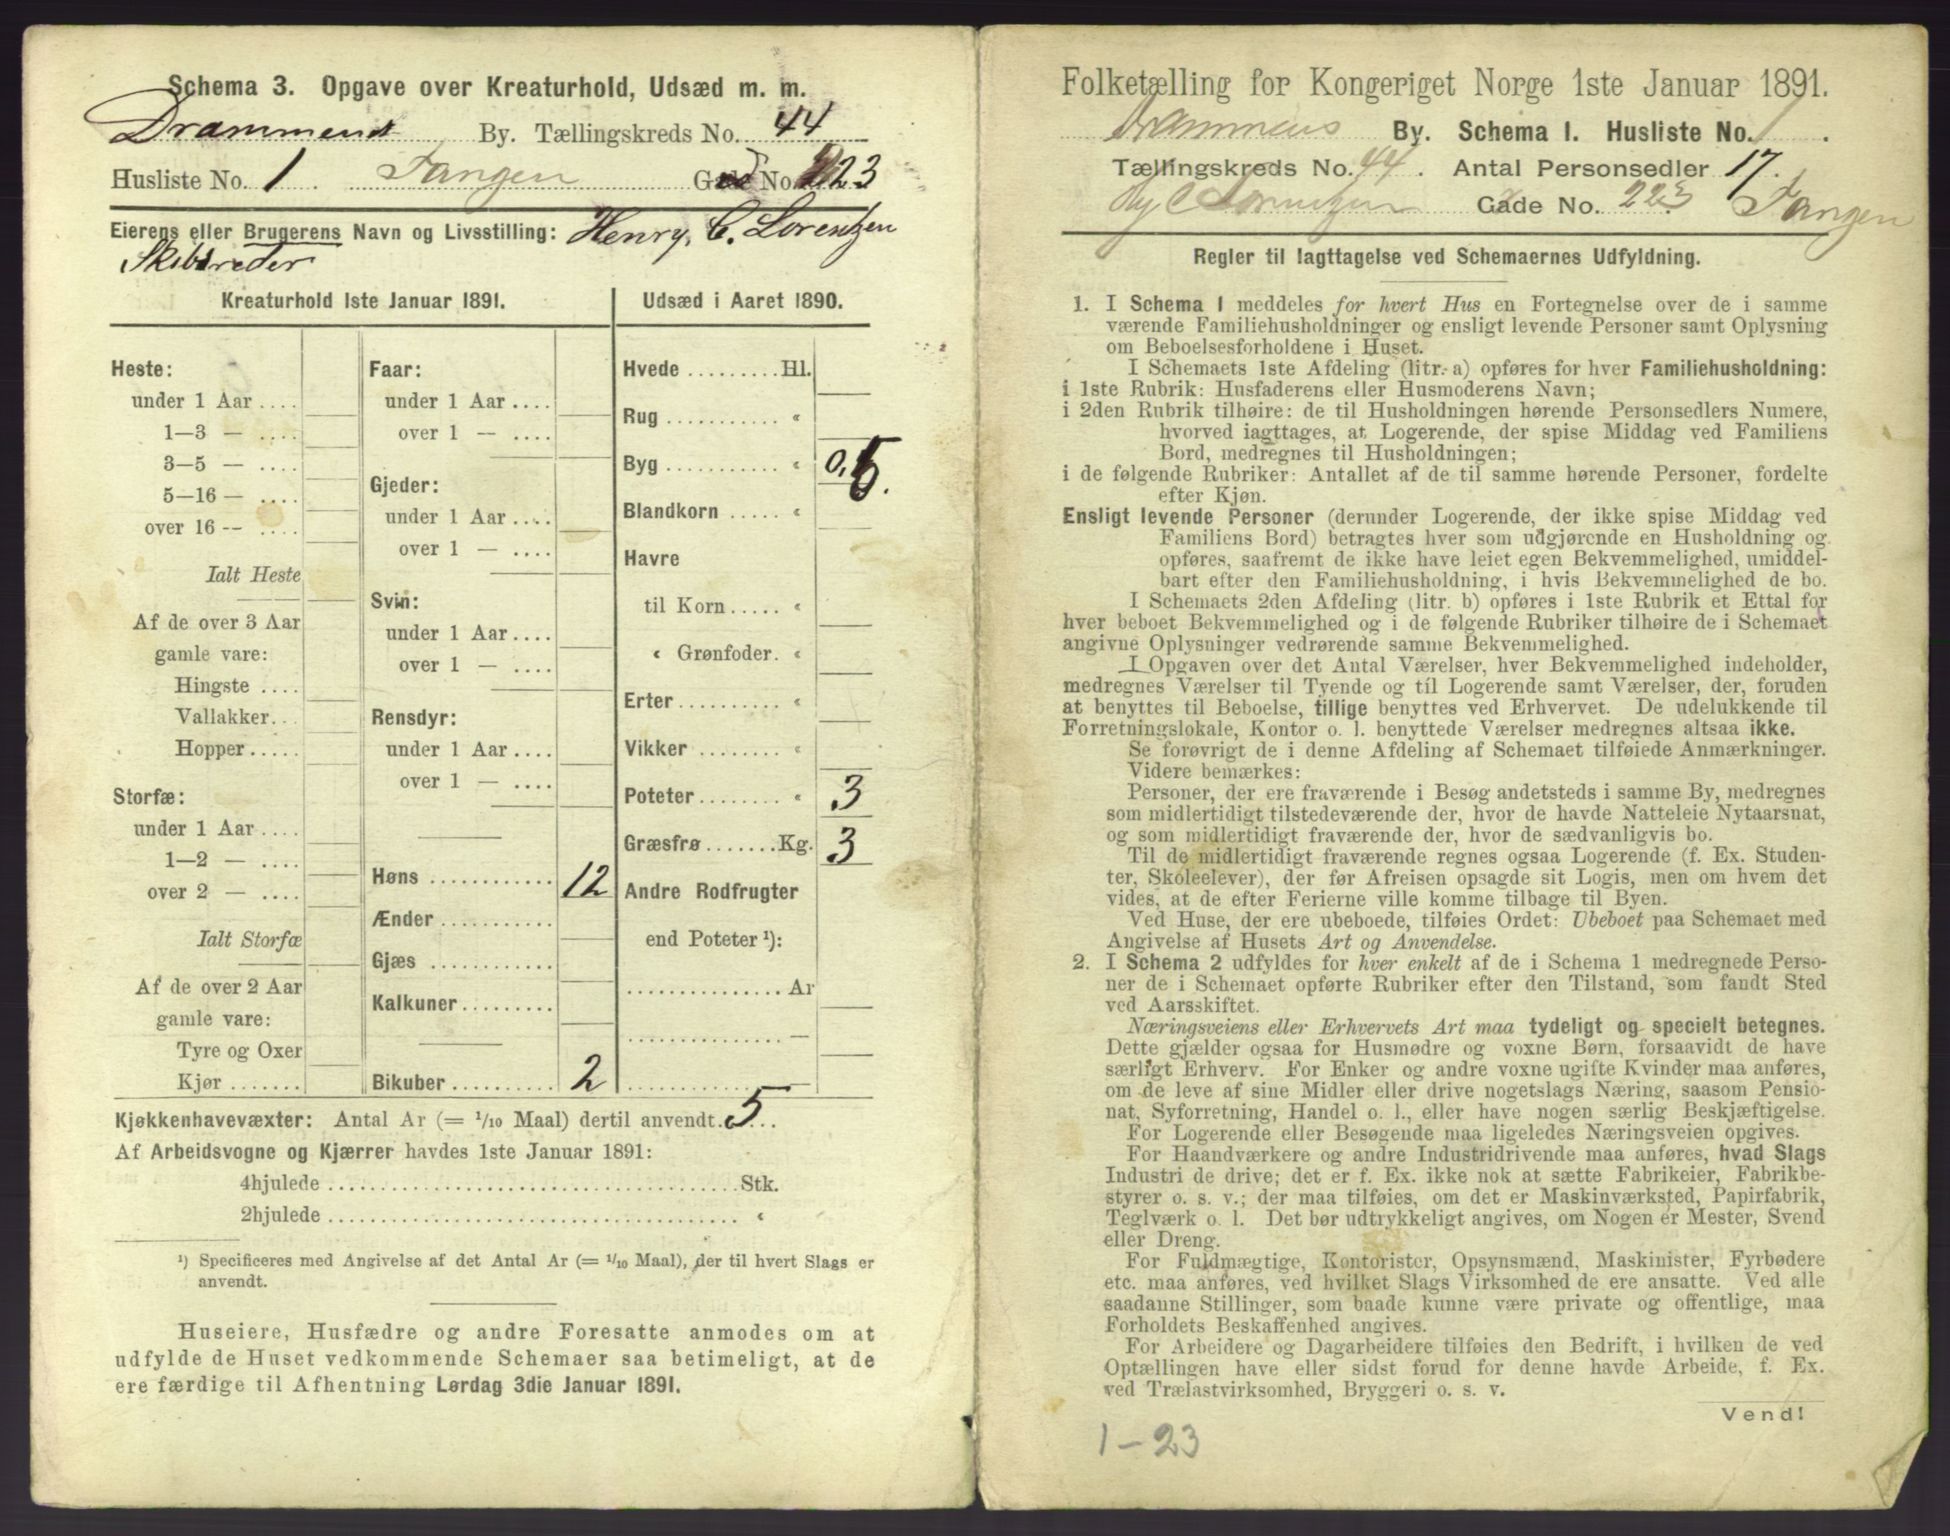 Schema 3. Opgave over Kreaturhold, Udsæd m. m.
Drammens By. Tællingskreds No. 44
Husliste No. 1 Tangen Gade No. 223
Eierens eller Brugerens Navn og Livsstilling: Henry, C. Lorentzen
Skibsreder
Kreaturhold 1ste Januar 1891.
Heste:
under 1 Aar ....
1—3 — ....
3—5 — ....
5—16 — ....
over 16 -- ....
Ialt Heste
Af de over 3 Aar
gamle vare:
Hingste ....
Vallakker...
Hopper.....
Storfæ:
under 1 Aar ....
1—2 — ....
over 2 — ....
Ialt Storfæ
Af de over 2 Aar
gamle vare:
Tyre og Oxer
Kjør .......
Faar:
under 1 Aar ....
over 1 — ....
Gjeder:
under 1 Aar ....
over 1 — ....
Svin:
under 1 Aar ....
over 1 — ....
Rensdyr:
under 1 Aar ....
over 1 — ....
Høns ............ 12
Ænder ............
Gjæs ............
Kalkuner.........
Bikuber .......... 2
Udsæd i Aaret 1890.
Hvede .........Hl.
Rug ........... «
Byg ........... « 0,5.
Blandkorn ..... «
Havre
til Korn..... «
« Grønfoder. «
Erter.......... «
Vikker ........ «
Poteter........ « 3
Græsfrø .......Kg. 3
Andre Rodfrugter
end Poteter ¹):
...............Ar
............... —
............... —
Kjøkkenhavevæxter: Antal Ar (= 1/10 Maal) dertil anvendt. 5...
Af Arbeidsvogne og Kjærrer havdes 1ste Januar 1891:
4hjulede ........................................Stk.
2hjulede ........................................ «
¹) Specificeres med Angivelse af det Antal Ar (= 1/10 Maal), der til hvert Slags er
anvendt.
Huseiere, Husfædre og andre Foresatte anmodes om at
udfylde de Huset vedkommende Schemaer saa betimeligt, at de
ere færdige til Afhentning Lørdag 3die Januar 1891.
Folketælling for Kongeriget Norge 1ste Januar 1891.
Drammens By. Schema 1. Husliste No. 1.
Tællingskreds No. 44. Antal Personsedler 17.
Hy C Lorentzen Gade No. 223 Tangen
Regler til Iagttagelse ved Schemaernes Udfyldning.
1. I Schema 1 meddeles for hvert Hus en Fortegnelse over de i samme
værende Familiehusholdninger og ensligt levende Personer samt Oplysning
om Beboelsesforholdene i Huset.
I Schemaets 1ste Afdeling (litr. a) opføres for hver Familiehusholdning:
i 1ste Rubrik: Husfaderens eller Husmoderens Navn;
i 2den Rubrik tilhøire: de til Husholdningen hørende Personsedlers Numere,
hvorved iagttages, at Logerende, der spise Middag ved Familiens
Bord, medregnes til Husholdningen;
i de følgende Rubriker: Antallet af de til samme hørende Personer, fordelte
efter Kjøn.
Ensligt levende Personer (derunder Logerende, der ikke spise Middag ved
Familiens Bord) betragtes hver som udgjørende en Husholdning og
opføres, saafremt de ikke have leiet egen Bekvemmelighed, umiddel-
bart efter den Familiehusholdning, i hvis Bekvemmelighed de bo.
I Schemaets 2den Afdeling (litr. b) opføres i 1ste Rubrik et Ettal for
hver beboet Bekvemmelighed og i de følgende Rubriker tilhøire de i Schemaet
angivne Oplysninger vedrørende samme Bekvemmelighed.
I Opgaven over det Antal Værelser, hver Bekvemmelighed indeholder,
medregnes Værelser til Tyende og til Logerende samt Værelser, der, foruden
at benyttes til Beboelse, tillige benyttes ved Erhvervet. De udelukkende til
Forretningslokale, Kontor o. l. benyttede Værelser medregnes altsaa ikke.
Se forøvrigt de i denne Afdeling af Schemaet tilføiede Anmærkninger.
Videre bemærkes:
Personer, der ere fraværende i Besøg andetsteds i samme By, medregnes
som midlertidigt tilstedeværende der, hvor de havde Natteleie Nytaarsnat,
og som midlertidigt fraværende der, hvor de sædvanligvis bo.
Til de midlertidigt fraværende regnes ogsaa Logerende (f. Ex. Studen-
ter, Skoleelever), der før Afreisen opsagde sit Logis, men om hvem det
vides, at de efter Ferierne ville komme tilbage til Byen.
Ved Huse, der ere ubeboede, tilføies Ordet: Ubeboet paa Schemaet med
Angivelse af Husets Art og Anvendelse.
2. I Schema 2 udfyldes for hver enkelt af de i Schema 1 medregnede Perso-
ner de i Schemaet opførte Rubriker efter den Tilstand, som fandt Sted
ved Aarsskiftet.
Næringsveiens eller Erhvervets Art maa tydeligt og specielt betegnes.
Dette gjælder ogsaa for Husmødre og voxne Børn, forsaavidt de have
særligt Erhverv. For Enker og andre voxne ugifte Kvinder maa anføres,
om de leve af sine Midler eller drive nogetslags Næring, saasom Pensio-
nat, Syforretning, Handel o. l., eller have nogen særlig Beskjæftigelse.
For Logerende eller Besøgende maa ligeledes Næringsveien opgives.
For Haandværkere og andre Industridrivende maa anføres, hvad Slags
Industri de drive; det er f. Ex. ikke nok at sætte Fabrikeier, Fabrikbe-
styrer o. s. v.; der maa tilføies, om det er Maskinværksted, Papirfabrik,
Teglværk o. l. Det bør udtrykkeligt angives, om Nogen er Mester, Svend
eller Dreng.
For Fuldmægtige, Kontorister, Opsynsmænd, Maskinister, Fyrbødere
etc. maa anføres, ved hvilket Slags Virksomhed de ere ansatte. Ved alle
saadanne Stillinger, som baade kunne være private og offentlige, maa
Forholdets Beskaffenhed angives.
For Arbeidere og Dagarbeidere tilføies den Bedrift, i hvilken de ved
Optællingen have eller sidst forud for denne havde Arbeide, f. Ex.
ved Trælastvirksomhed, Bryggeri o. s. v.
Vend!
1 – 23